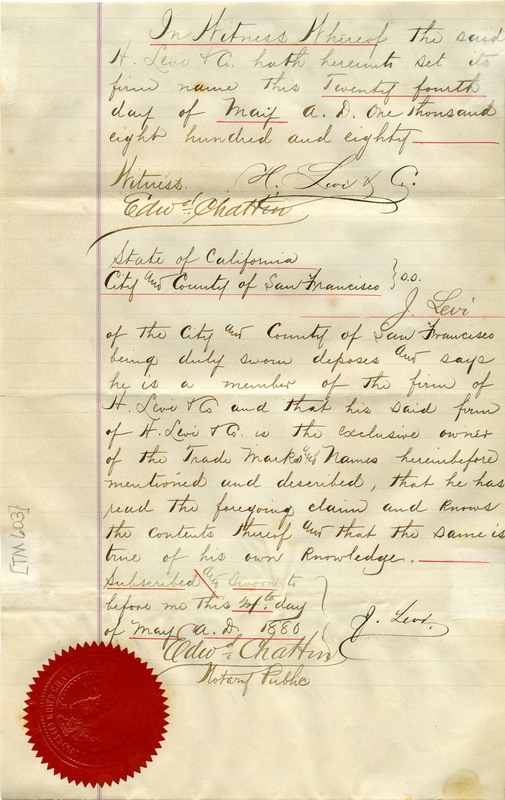 In Witness Whereof the said
H. Levi & Co. hath hereunto set its
firm name this Twenty fourth
day of May A. D. One thousand
eight hundred and eighty
Witness. H. Levi & Co.
Edwd. Chattin
State of California
City and County of San Francisco } S.S.
J. Levi
of the City and County of San Francisco
being duly sworn deposes and says
he is a member of the firm of
H. Levi & Co and that his said firm
of H. Levi & Co. is the exclusive owner
of the Trade Marks and Names hereinbefore
mentioned and described, that he has
read the foregoing claim and knows
the contents thereof and that the same is
true of his own knowledge.
Subscribed and Sworn to
before me this 24th day
of May A. D. 1880 } J. Levi.
Edwd. Chattin
Notary Public
[TM 603]